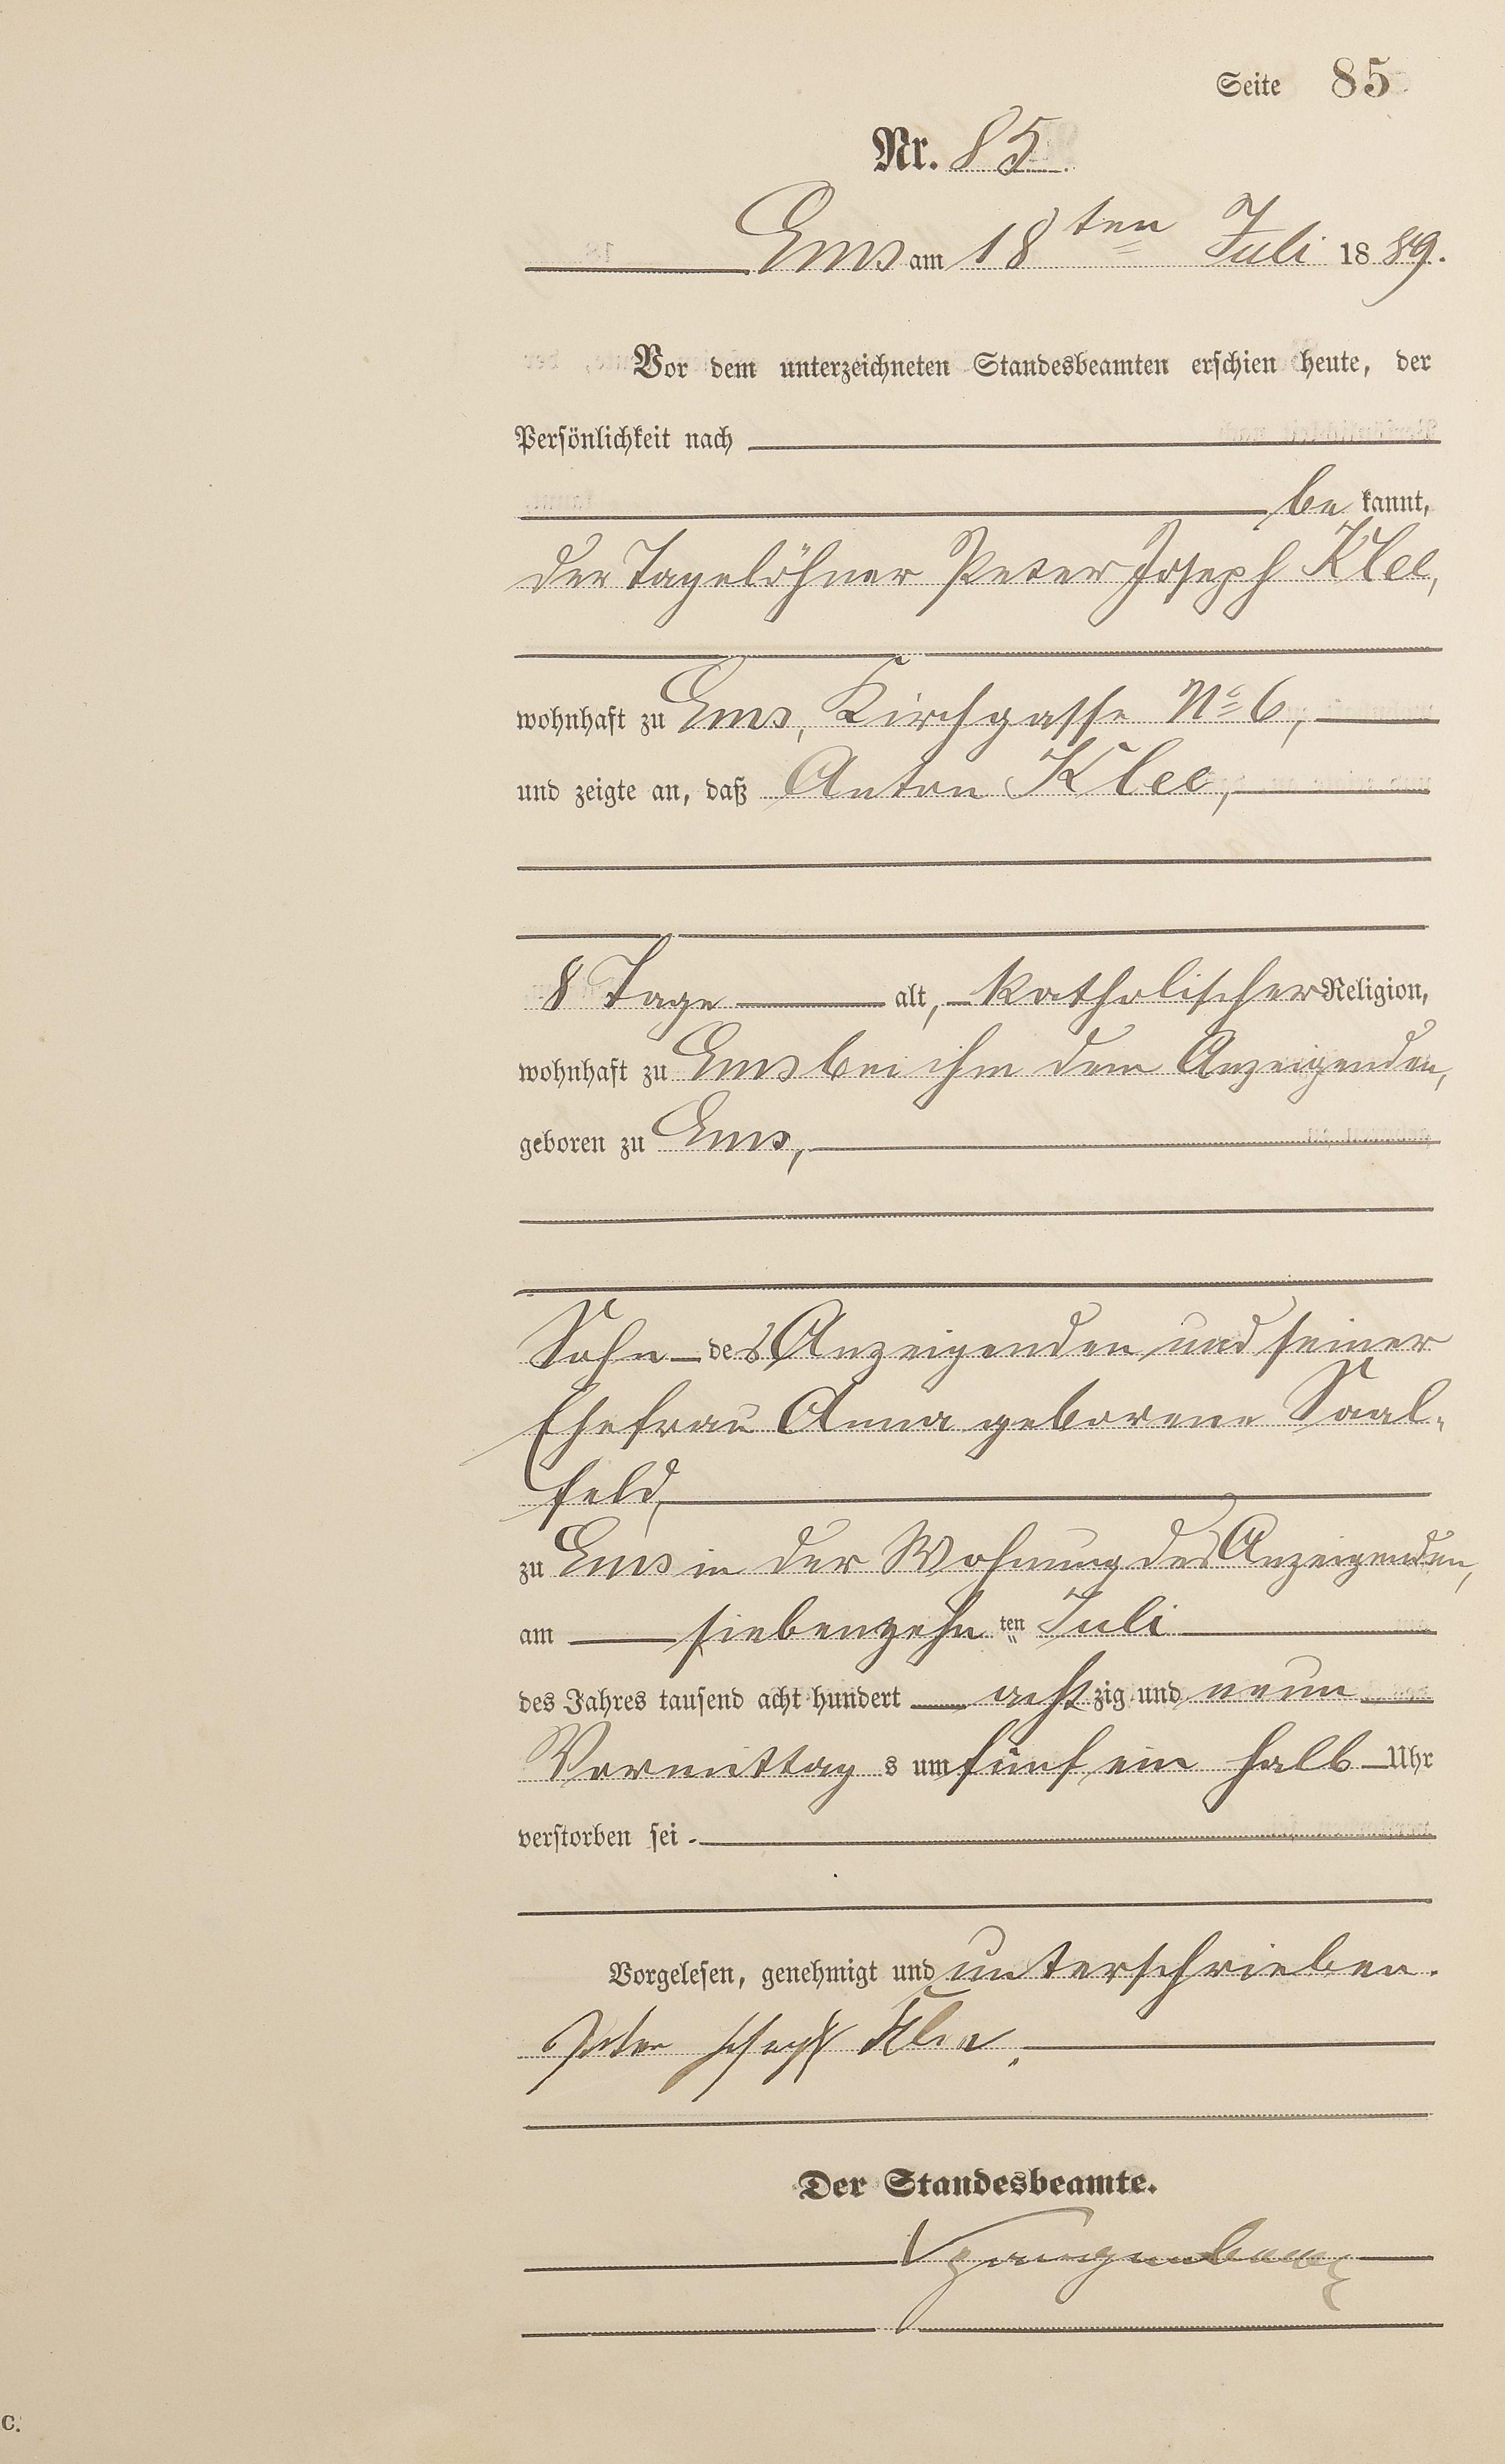 Seite 85
Nr. 85.
Ems am 18ten Juli 1889.
Vor dem unterzeichneten Standesbeamten erschien heute, der
Persönlichkeit nach
bekannt,
der Tagelöhner Peter Joseph Klee,
wohnhaft zu Ems, Kirchgasse No 6,
und zeigte an, daß Anton Klee,
8 Tage alt, katholischer Religion,
wohnhaft zu Ems bei ihm dem Anzeigenden,
geboren zu Ems,
Sohn des Anzeigenden und seiner
Ehefrau Anna geborene Saal-
feld,
zu Ems in der Wohnung des Anzeigenden,
am siebenzehnten Juli
des Jahres tausend acht hundert achtzig und neun
Vormittags um fünf ein halb Uhr
verstorben sei.
Vorgelesen, genehmigt und unterschrieben.
Peter Joseph Klee.
Der Standesbeamte.
C.